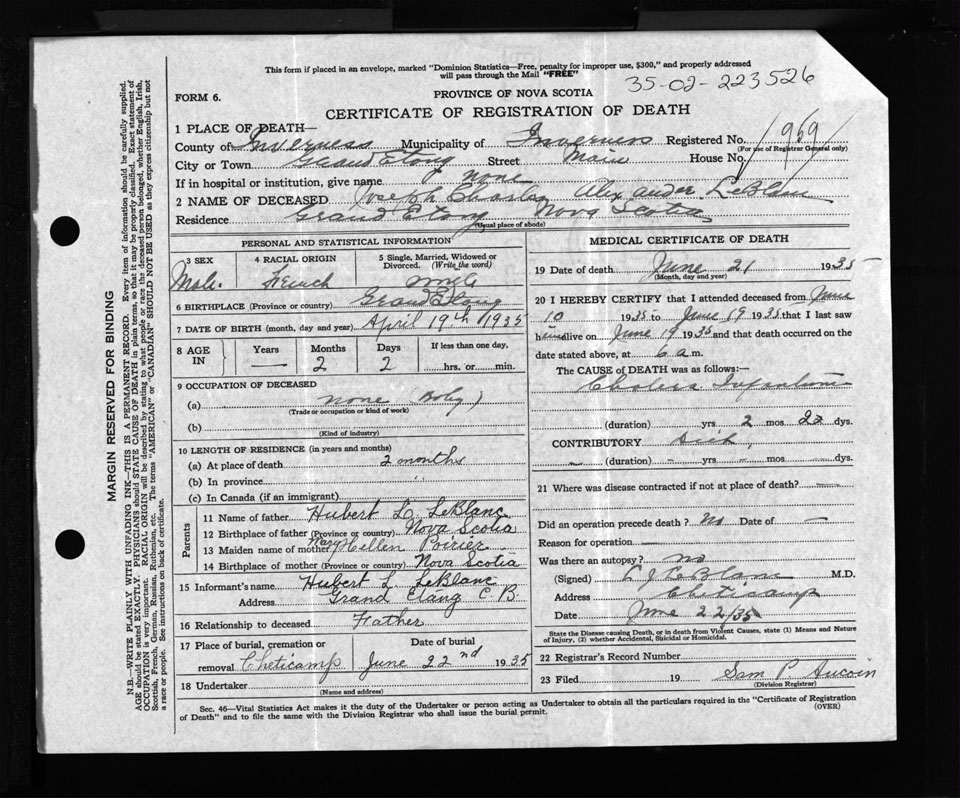 This form if placed in an envelope, marked "Dominion Statistics—Free, penalty for improper use, $300," and properly addressed
will pass through the Mail "FREE"
35-02-223526
FORM 6.
PROVINCE OF NOVA SCOTIA
CERTIFICATE OF REGISTRATION OF DEATH
1 PLACE OF DEATH—
County of Inverness Municipality of Inverness Registered No. 1969
(For use of Registrar General only)
City or Town Grand Etang Street Main House No.
If in hospital or institution, give name none
2 NAME OF DECEASED Joseph Charles Alexander LeBlanc
Residence Grand Etang Nova Scotia
(Usual place of abode)
PERSONAL AND STATISTICAL INFORMATION
3 SEX 4 RACIAL ORIGIN 5 Single, Married, Widowed or
Divorced. (Write the word)
Male. French single
6 BIRTHPLACE (Province or country) Grand Etang
7 DATE OF BIRTH (month, day and year) April 19th 1935
8 AGE IN Years Months Days If less than one day,
— 2 2 hrs. or min.
9 OCCUPATION OF DECEASED
(a) none Baby)
(Trade or occupation or kind of work)
(b)
(Kind of industry)
10 LENGTH OF RESIDENCE (in years and months)
(a) At place of death 2 months
(b) In province "
(c) In Canada (if an immigrant)
Parents
11 Name of father Hubert L. LeBlanc
12 Birthplace of father (Province or country) Nova Scotia
13 Maiden name of mother Mary Hellen Poirier
14 Birthplace of mother (Province or country) Nova Scotia
15 Informant's name Hubert L LeBlanc
Address Grand Etang C B
16 Relationship to deceased Father
17 Place of burial, cremation or Date of burial
removal Cheticamp June 22nd 1935
18 Undertaker
(Name and address)
MEDICAL CERTIFICATE OF DEATH
19 Date of death June 21 1935
(Month, day and year)
20 I HEREBY CERTIFY that I attended deceased from June
10 1935 to June 19 1935 that I last saw
him alive on June 19 1935 and that death occurred on the
date stated above, at 6 a.m.
The CAUSE of DEATH was as follows:—
Cholera Infantum
(duration) yrs 2 mos 22 dys.
CONTRIBUTORY
— (duration) — yrs — mos — dys.
21 Where was disease contracted if not at place of death? —
Did an operation precede death? No Date of —
Reason for operation —
Was there an autopsy? no
(Signed) L J LeBlanc M.D.
Address Cheticamp
Date June 22/35
State the Disease causing Death, or in death from Violent Causes, state (1) Means and Nature
of Injury, (2) whether Accidental, Suicidal or Homicidal.
22 Registrar's Record Number
23 Filed 19 Sam P. Aucoin
(Division Registrar)
Sec. 46—Vital Statistics Act makes it the duty of the Undertaker or person acting as Undertaker to obtain all the particulars required in the "Certificate of Registration
of Death" and to file the same with the Division Registrar who shall issue the burial permit.
(OVER)
MARGIN RESERVED FOR BINDING
N.B.—WRITE PLAINLY WITH UNFADING INK—THIS IS A PERMANENT RECORD. Every item of information should be carefully supplied.
AGE should be stated EXACTLY. PHYSICIANS should STATE CAUSE OF DEATH in plain terms, so that it may be properly classified. Exact statement of
OCCUPATION is very important. RACIAL ORIGIN will be described by stating to what people or race the deceased person belonged, whether English, Irish,
Scottish, French, German, Russian, Ruthenian, etc. The terms "AMERICAN" or "CANADIAN" SHOULD NOT BE USED as they express citizenship but not
a race or people. See instructions on back of certificate.